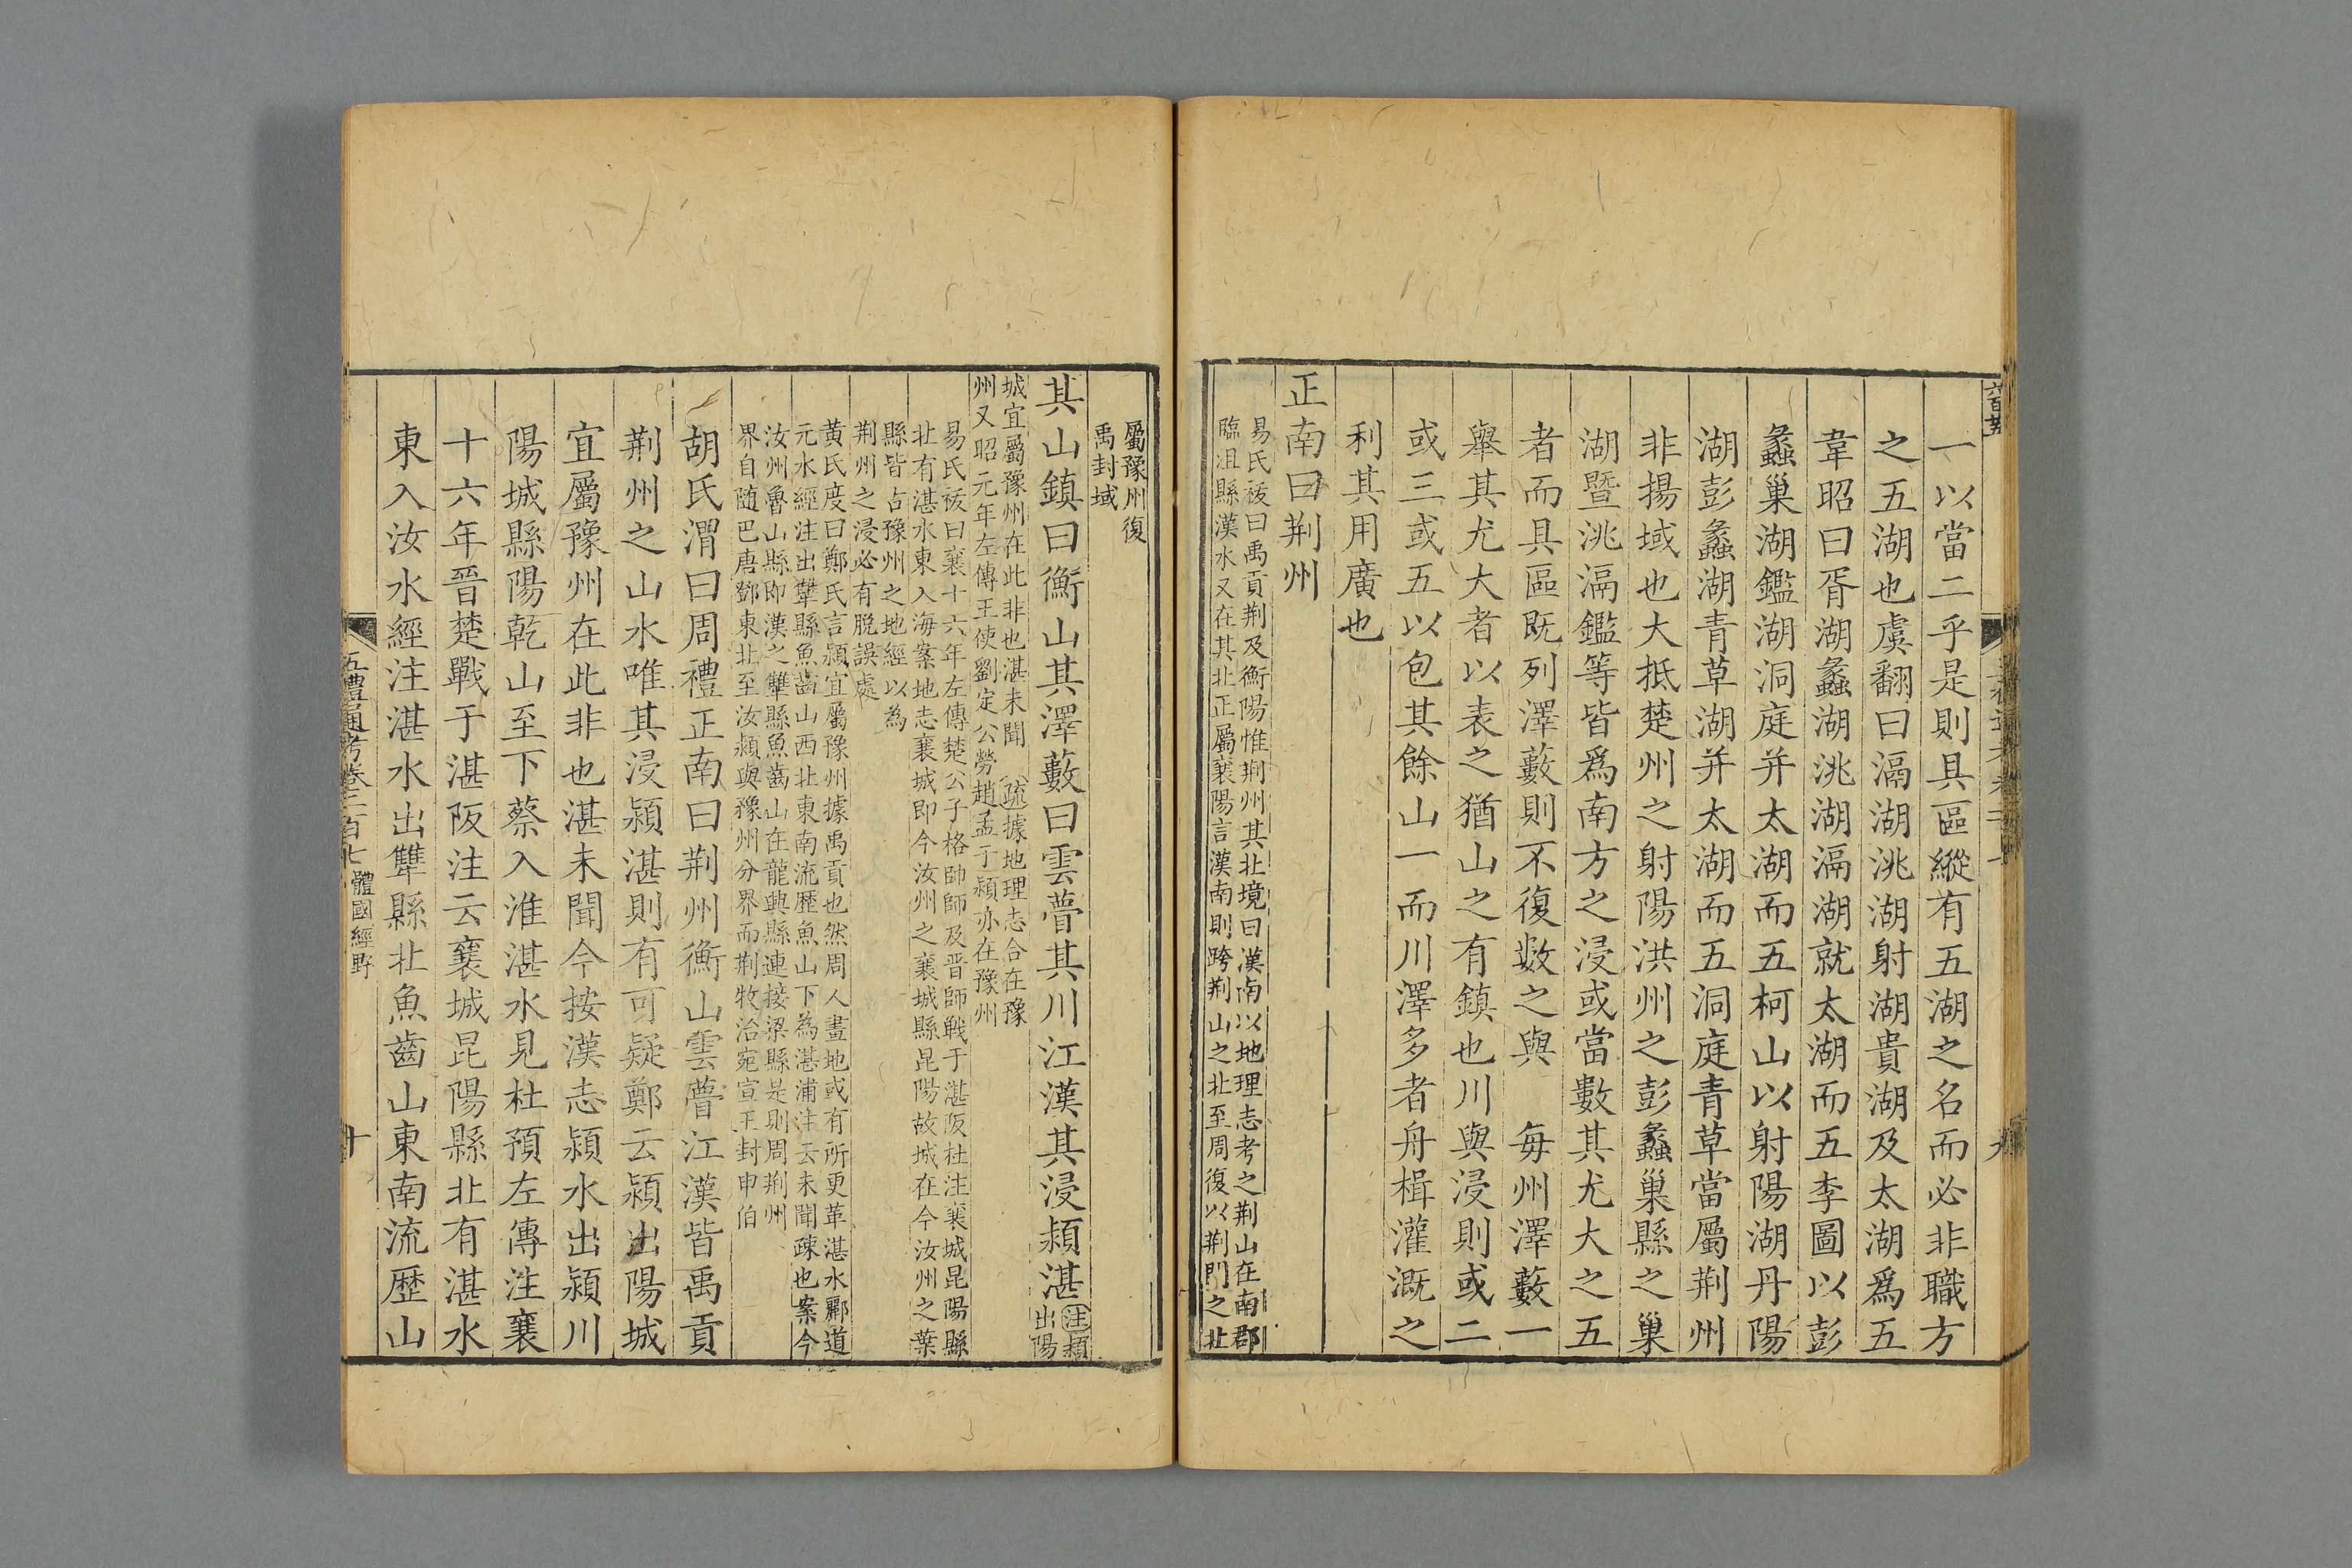 一以當二乎是則具區縱有五湖之名而必非職方
之五湖也虞翻曰滆湖洮湖射湖貴湖及太湖爲五
韋昭曰胥湖蠡湖洮湖滆湖就太湖而五李圖以彭
蠡巢湖鑑湖洞庭并太湖而五柯山以射陽湖丹陽
湖彭蠡湖青草湖并太湖而五洞庭青草當屬荆州
非揚域也大抵楚州之射陽洪州之彭蠡巢縣之巢
湖暨洮滆鑑等皆爲南方之浸或當數其尤大之五
者而具區既列澤藪則不復数之與 每州澤藪一
舉其尤大者以表之猶山之有鎮也川與浸則或二
或三或五以包其餘山一而川澤多者舟楫灌溉之
利其用廣也
正南曰荆州
易氏祓曰禹貢荆及衡陽惟荆州其北境曰漢南以地理志考之荆山在南郡
臨沮縣漢水又在其北正屬襄陽言漢南則跨荆山之北至周復以荆門之北
屬豫州復
禹封域
其山鎮曰衡山其澤藪曰雲瞢其川江漢其浸潁湛
注潁
出陽
城宜屬豫州在此非也湛未聞 疏據地理志合在豫
州又昭元年左傳王使劉定公勞趙孟于潁亦在豫州
易氏祓曰襄十六年左傳楚公子格帥師及晋師戰于湛阪杜注襄城昆陽縣
北有湛水東入海案地志襄城即今汝州之襄城縣昆陽故城在今汝州之葉
縣皆占豫州之地經以為
荆州之浸必有脫誤處
黄氏度曰鄭氏言潁宜屬豫州據禹貢也然周人畫地或有所更革湛水酈道
元水經注出犨縣魚齒山西北東南流歴魚山下為湛浦注云未聞疎也案今
汝州魯山縣即漢之犨縣魚齒山在龍興縣連接梁縣是則周荆州
界自随巴唐鄧東北至汝潁與豫州分界而荆牧治宛宣王封申伯
胡氏渭曰周禮正南曰荆州衡山雲瞢江漢皆禹貢
荆州之山水唯其浸潁湛則有可疑鄭云潁出陽城
宜屬豫州在此非也湛未聞今按漢志潁水出潁川
陽城縣陽乾山至下蔡入淮湛水見杜預左傳注襄
十六年晉楚戰于湛阪注云襄城昆陽縣北有湛水
東入汝水經注湛水出犨縣北魚齒山東南流歴山
五禮通考卷二百七
體國經野
十